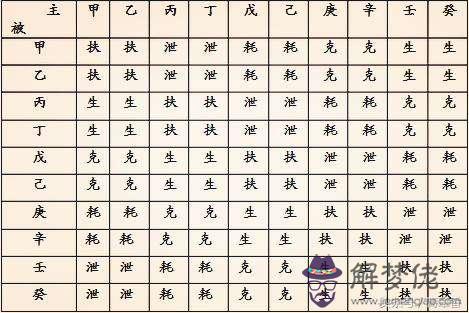 主 甲 乙 丙 丁 戊 己 庚 辛 壬 癸
被
甲 扶 扶 泄 泄 耗 耗 克 克 生 生
乙 扶 扶 泄 泄 耗 耗 克 克 生 生
丙 生 生 扶 扶 泄 泄 耗 耗 克 克
丁 生 生 扶 扶 泄 泄 耗 耗 克 克
戊 克 克 生 生 扶 扶 泄 泄 耗 耗
己 克 克 生 生 扶 扶 泄 泄 耗 耗
庚 耗 耗 克 克 生 生 扶 扶 泄 泄
辛 耗 耗 克 克 生 生 扶 扶 泄 泄
壬 泄 泄 耗 耗 克 克 生 生 扶 扶
癸 泄 泄 耗 耗 克 克 生 生 扶 扶
解梦佬
www.jiemenglao.com